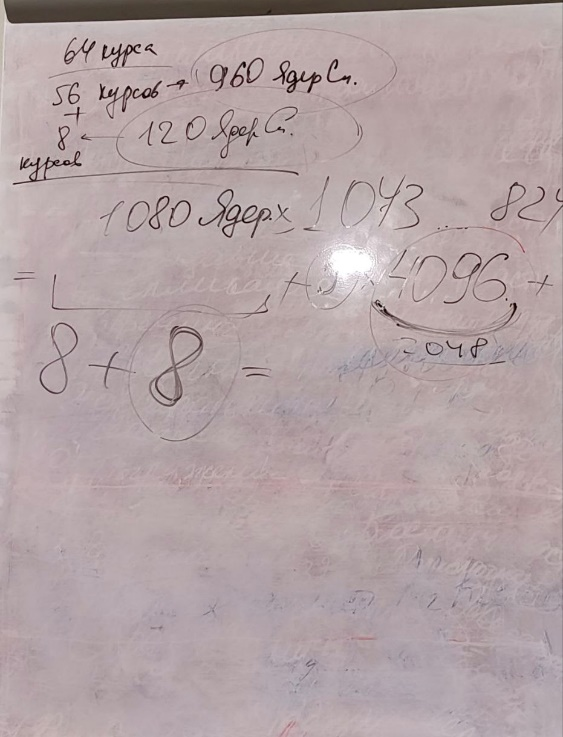 64 курса
56 курсов → 960 Ядер Сп.
+
8 ← 120 Ядер С.
курсов
1080 Ядер x 1043 ... 824
= + 4096 +
2048
8 + 8 =